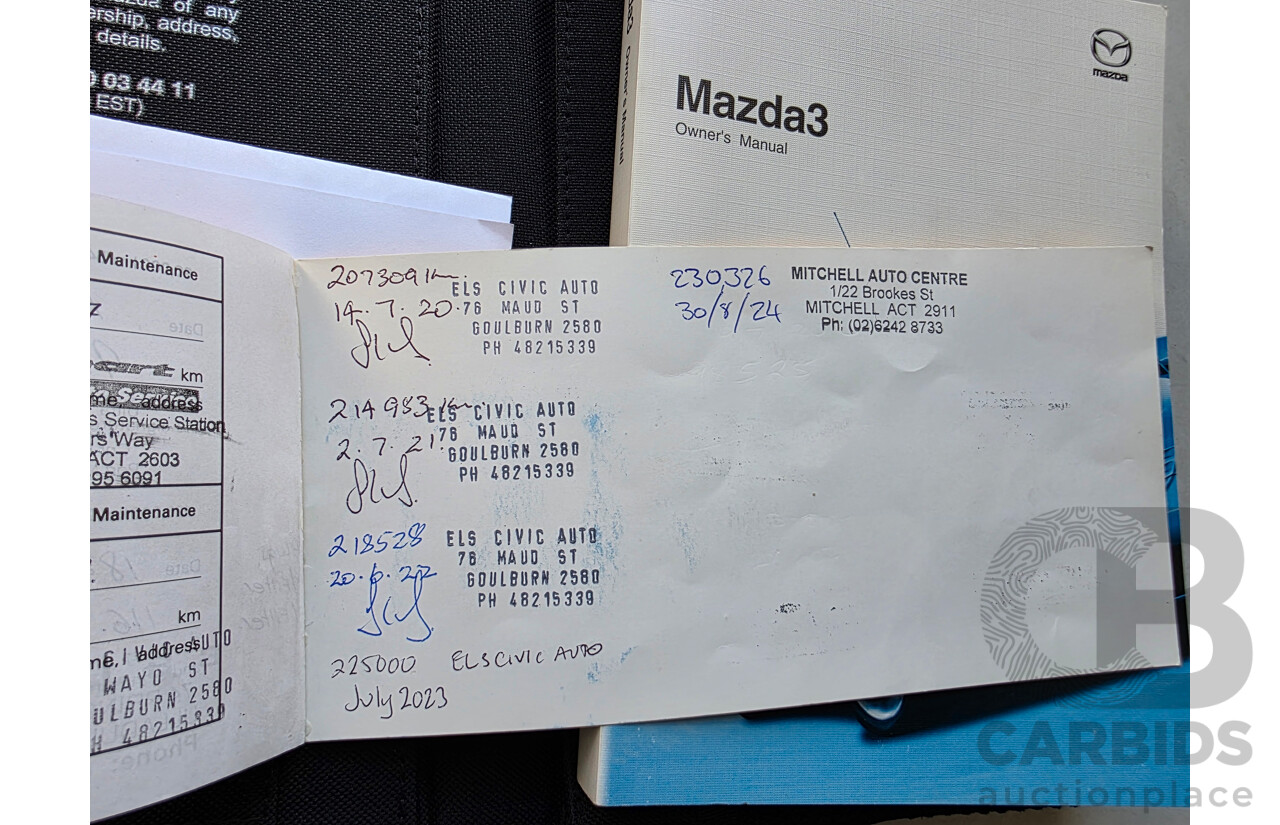 azda of any
ership, address,
details.
0 03 44 11
EST)
mazda
Mazda3
Owner's Manual
Owner's Manual
Maintenance
km
me, address
s Service Station
rs Way
ACT 2603
95 6091
Maintenance
Date
km
me, address
CIVIC AUTO
WAYO ST
ULBURN 2580
H 48215339
Phone:
207309 km.
14.7.20.
ELS CIVIC AUTO
76 MAUD ST
GOULBURN 2580
PH 48215339
214983 km
2.7.21.
ELS CIVIC AUTO
76 MAUD ST
GOULBURN 2580
PH 48215339
218528
20.6.22
ELS CIVIC AUTO
76 MAUD ST
GOULBURN 2580
PH 48215339
225000 ELS CIVIC AUTO
July 2023
230326
30/8/24
MITCHELL AUTO CENTRE
1/22 Brookes St
MITCHELL ACT 2911
Ph: (02)6242 8733
CARBIDS
auctionplace